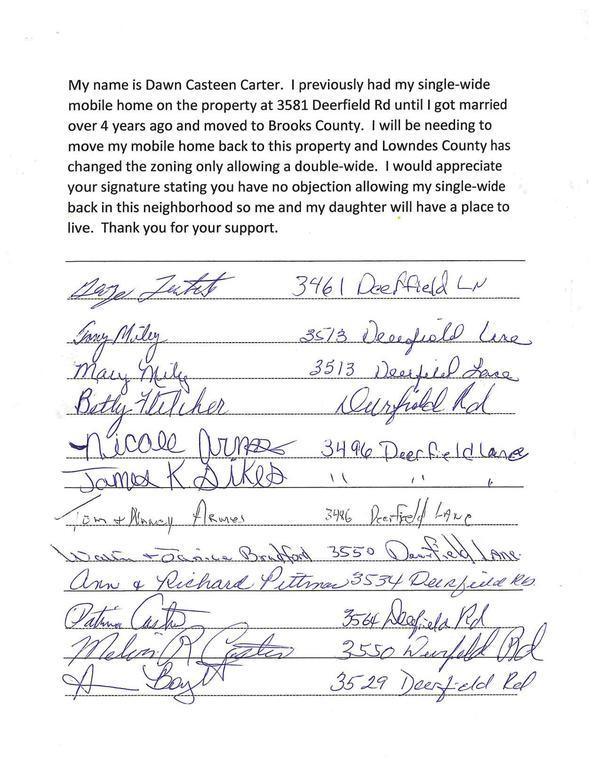 My name is Dawn Casteen Carter.  I previously had my single-wide
mobile home on the property at 3581 Deerfield Rd until I got married
over 4 years ago and moved to Brooks County.  I will be needing to
move my mobile home back to this property and Lowndes County has
changed the zoning only allowing a double-wide.  I would appreciate
your signature stating you have no objection allowing my single-wide
back in this neighborhood so me and my daughter will have a place to
live.  Thank you for your support.
3461 Deerfield LN
Miley 3513 Deerfield Lane
Mary Miley 3513 Deerfield Lane
Betty Fletcher Deerfield Rd
Nicole 3496 Deerfield Lane
James K Sikes " " "
Tom + Nancy Deerfield Lane
+ Janice Bradford 3550 Deerfield Lane
Ann & Richard Pittman 3534 Deerfield Rd
3564 Deerfield Rd
Melvin R 3550 Deerfield Rd
3529 Deerfield Rd